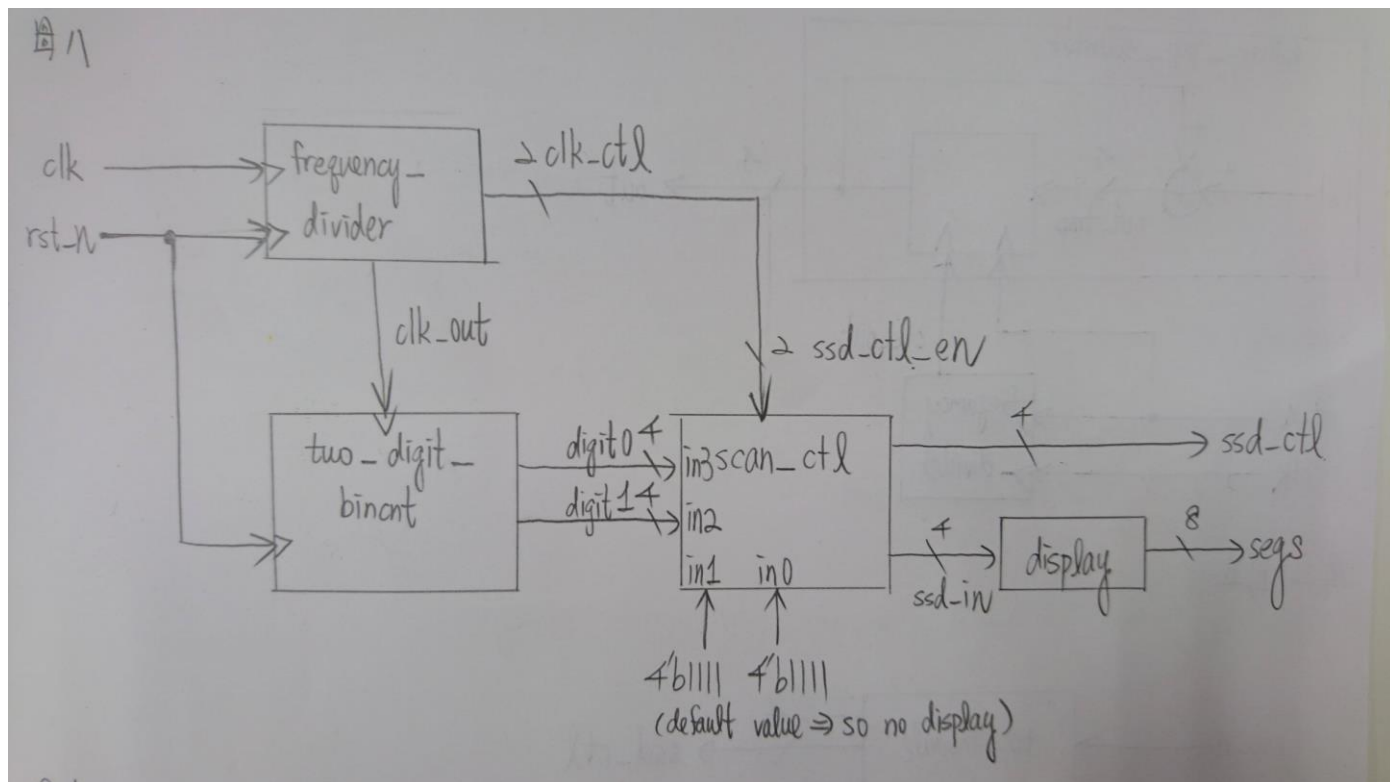 圖八
clk
rst_n
frequency_
divider
2 clk_ctl
clk_out
2 ssd_ctl_en
two_digit_
bincnt
digit0 4
digit1 4
in3 scan_ctl
in2
in1 in0
4 ssd_ctl
4
ssd_in
display
8
segs
4'b1111 4'b1111
(default value ⇒ so no display)